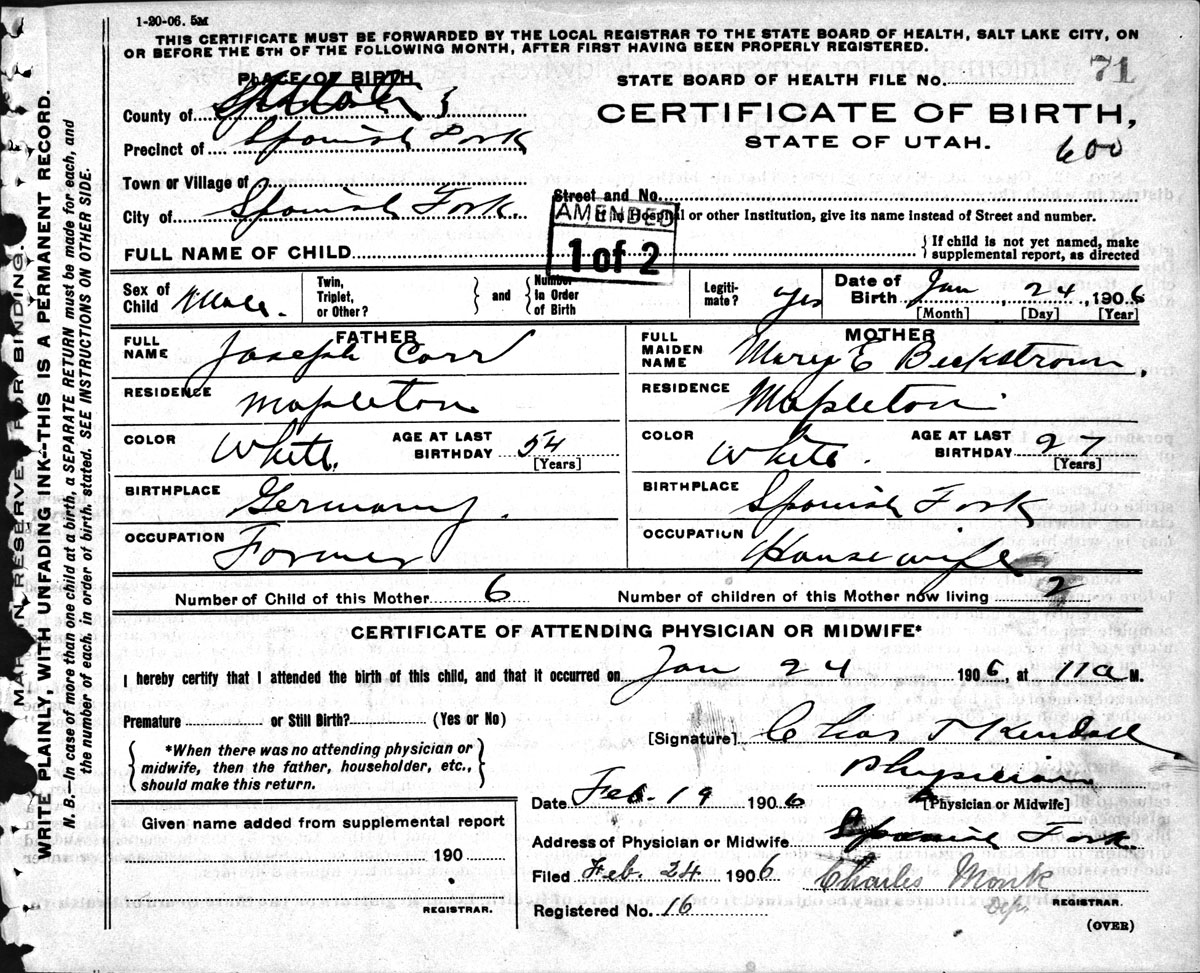 1-20-06. 5M
THIS CERTIFICATE MUST BE FORWARDED BY THE LOCAL REGISTRAR TO THE STATE BOARD OF HEALTH, SALT LAKE CITY, ON
OR BEFORE THE 5TH OF THE FOLLOWING MONTH, AFTER FIRST HAVING BEEN PROPERLY REGISTERED.
PLACE OF BIRTH
STATE BOARD OF HEALTH FILE NO. 71
County of
CERTIFICATE OF BIRTH,
Precinct of Spanish Fork
STATE OF UTAH. 600
Town or Village of
Street and No.
City of Spanish Fork.
Hospital or other Institution, give its name instead of Street and number.
AMENDED
1 of 2
FULL NAME OF CHILD
If child is not yet named, make
supplemental report, as directed
Sex of
Child Male.
Twin,
Triplet,
or Other?
and
Number
in Order
of Birth
Legiti-
mate? yes
Date of
Birth Jan 24 1906
[Month] [Day] [Year]
FATHER
FULL
NAME Joseph Carr
MOTHER
FULL
MAIDEN
NAME Mary E Beckstrom.
RESIDENCE Mapleton
RESIDENCE Mapleton
COLOR White. AGE AT LAST
BIRTHDAY 54
[Years]
COLOR White. AGE AT LAST
BIRTHDAY 27
[Years]
BIRTHPLACE Germany.
BIRTHPLACE Spanish Fork
OCCUPATION Farmer
OCCUPATION Housewife
Number of Child of this Mother 6 Number of children of this Mother now living 2
CERTIFICATE OF ATTENDING PHYSICIAN OR MIDWIFE*
I hereby certify that I attended the birth of this child, and that it occurred on Jan 24 1906, at 11 a M.
Premature or Still Birth? (Yes or No)
*When there was no attending physician or
midwife, then the father, householder, etc.,
should make this return.
[Signature] Chas T Kendall
Physician
Date Feb. 19 1906 [Physician or Midwife]
Given name added from supplemental report
190
REGISTRAR.
Address of Physician or Midwife Spanish Fork.
Filed Feb. 24 1906 Charles Monk
Dep. REGISTRAR.
Registered No. 16
(OVER)
MARGIN RESERVED FOR BINDING.
WRITE PLAINLY, WITH UNFADING INK--THIS IS A PERMANENT RECORD.
N. B.—In case of more than one child at a birth, a SEPARATE RETURN must be made for each, and
the number of each. in order of birth, stated. SEE INSTRUCTIONS ON OTHER SIDE.